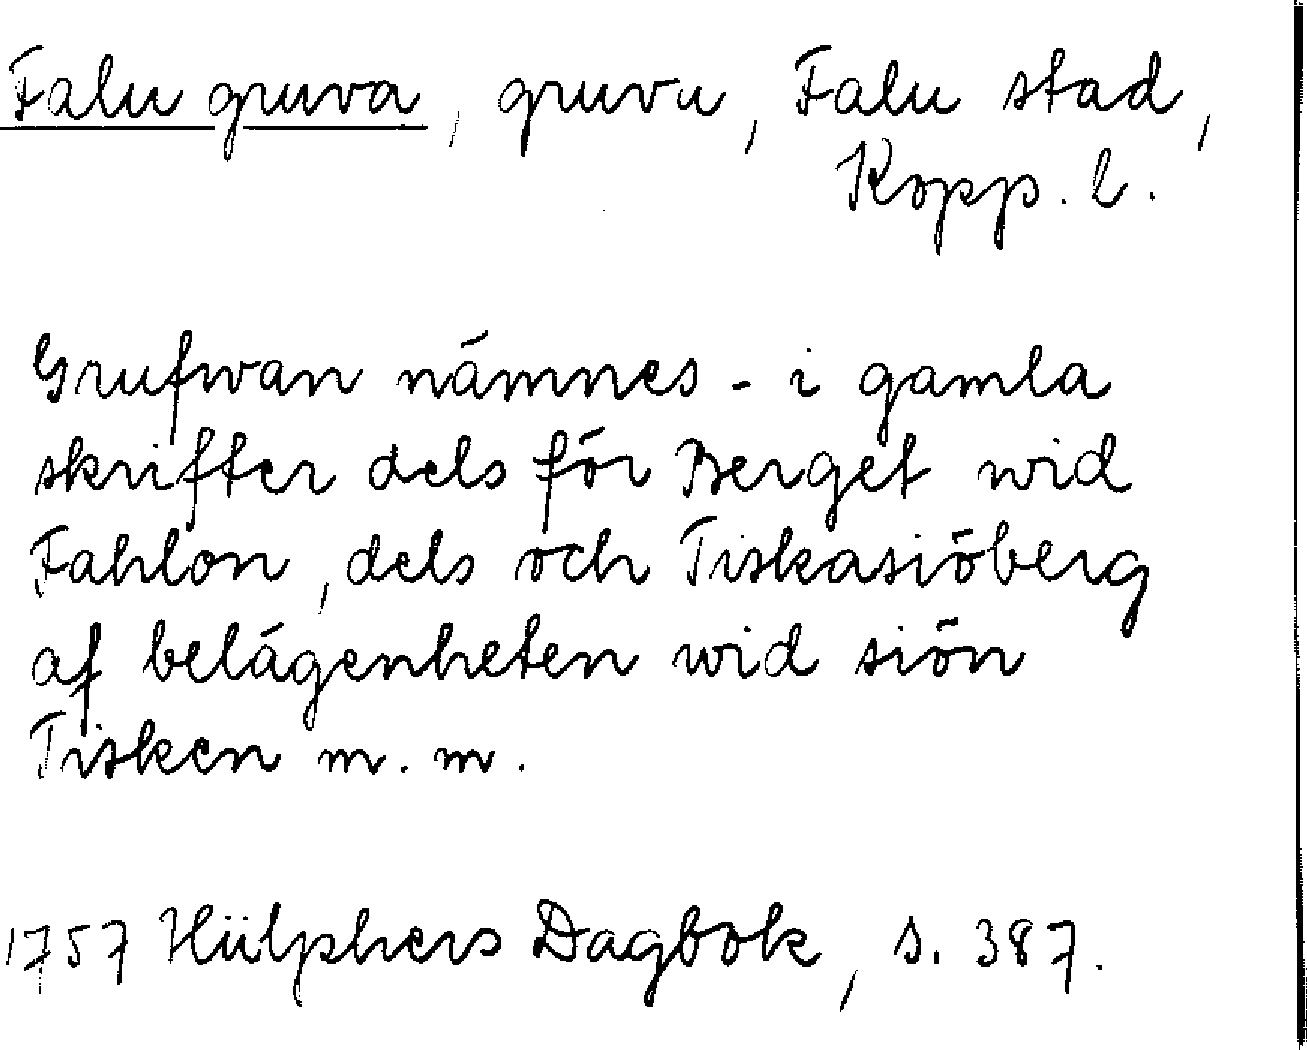 Falu gruva, gruvu, Falu stad,
Kopp. l.
Grufwan nämnes - i gamla
skrifter dels för Berget wid
Fahlon, dels och Tiskasiöberg
af belägenheten wid siön
Tisken m. m.
1757 Hülphers Dagbok, s. 387.